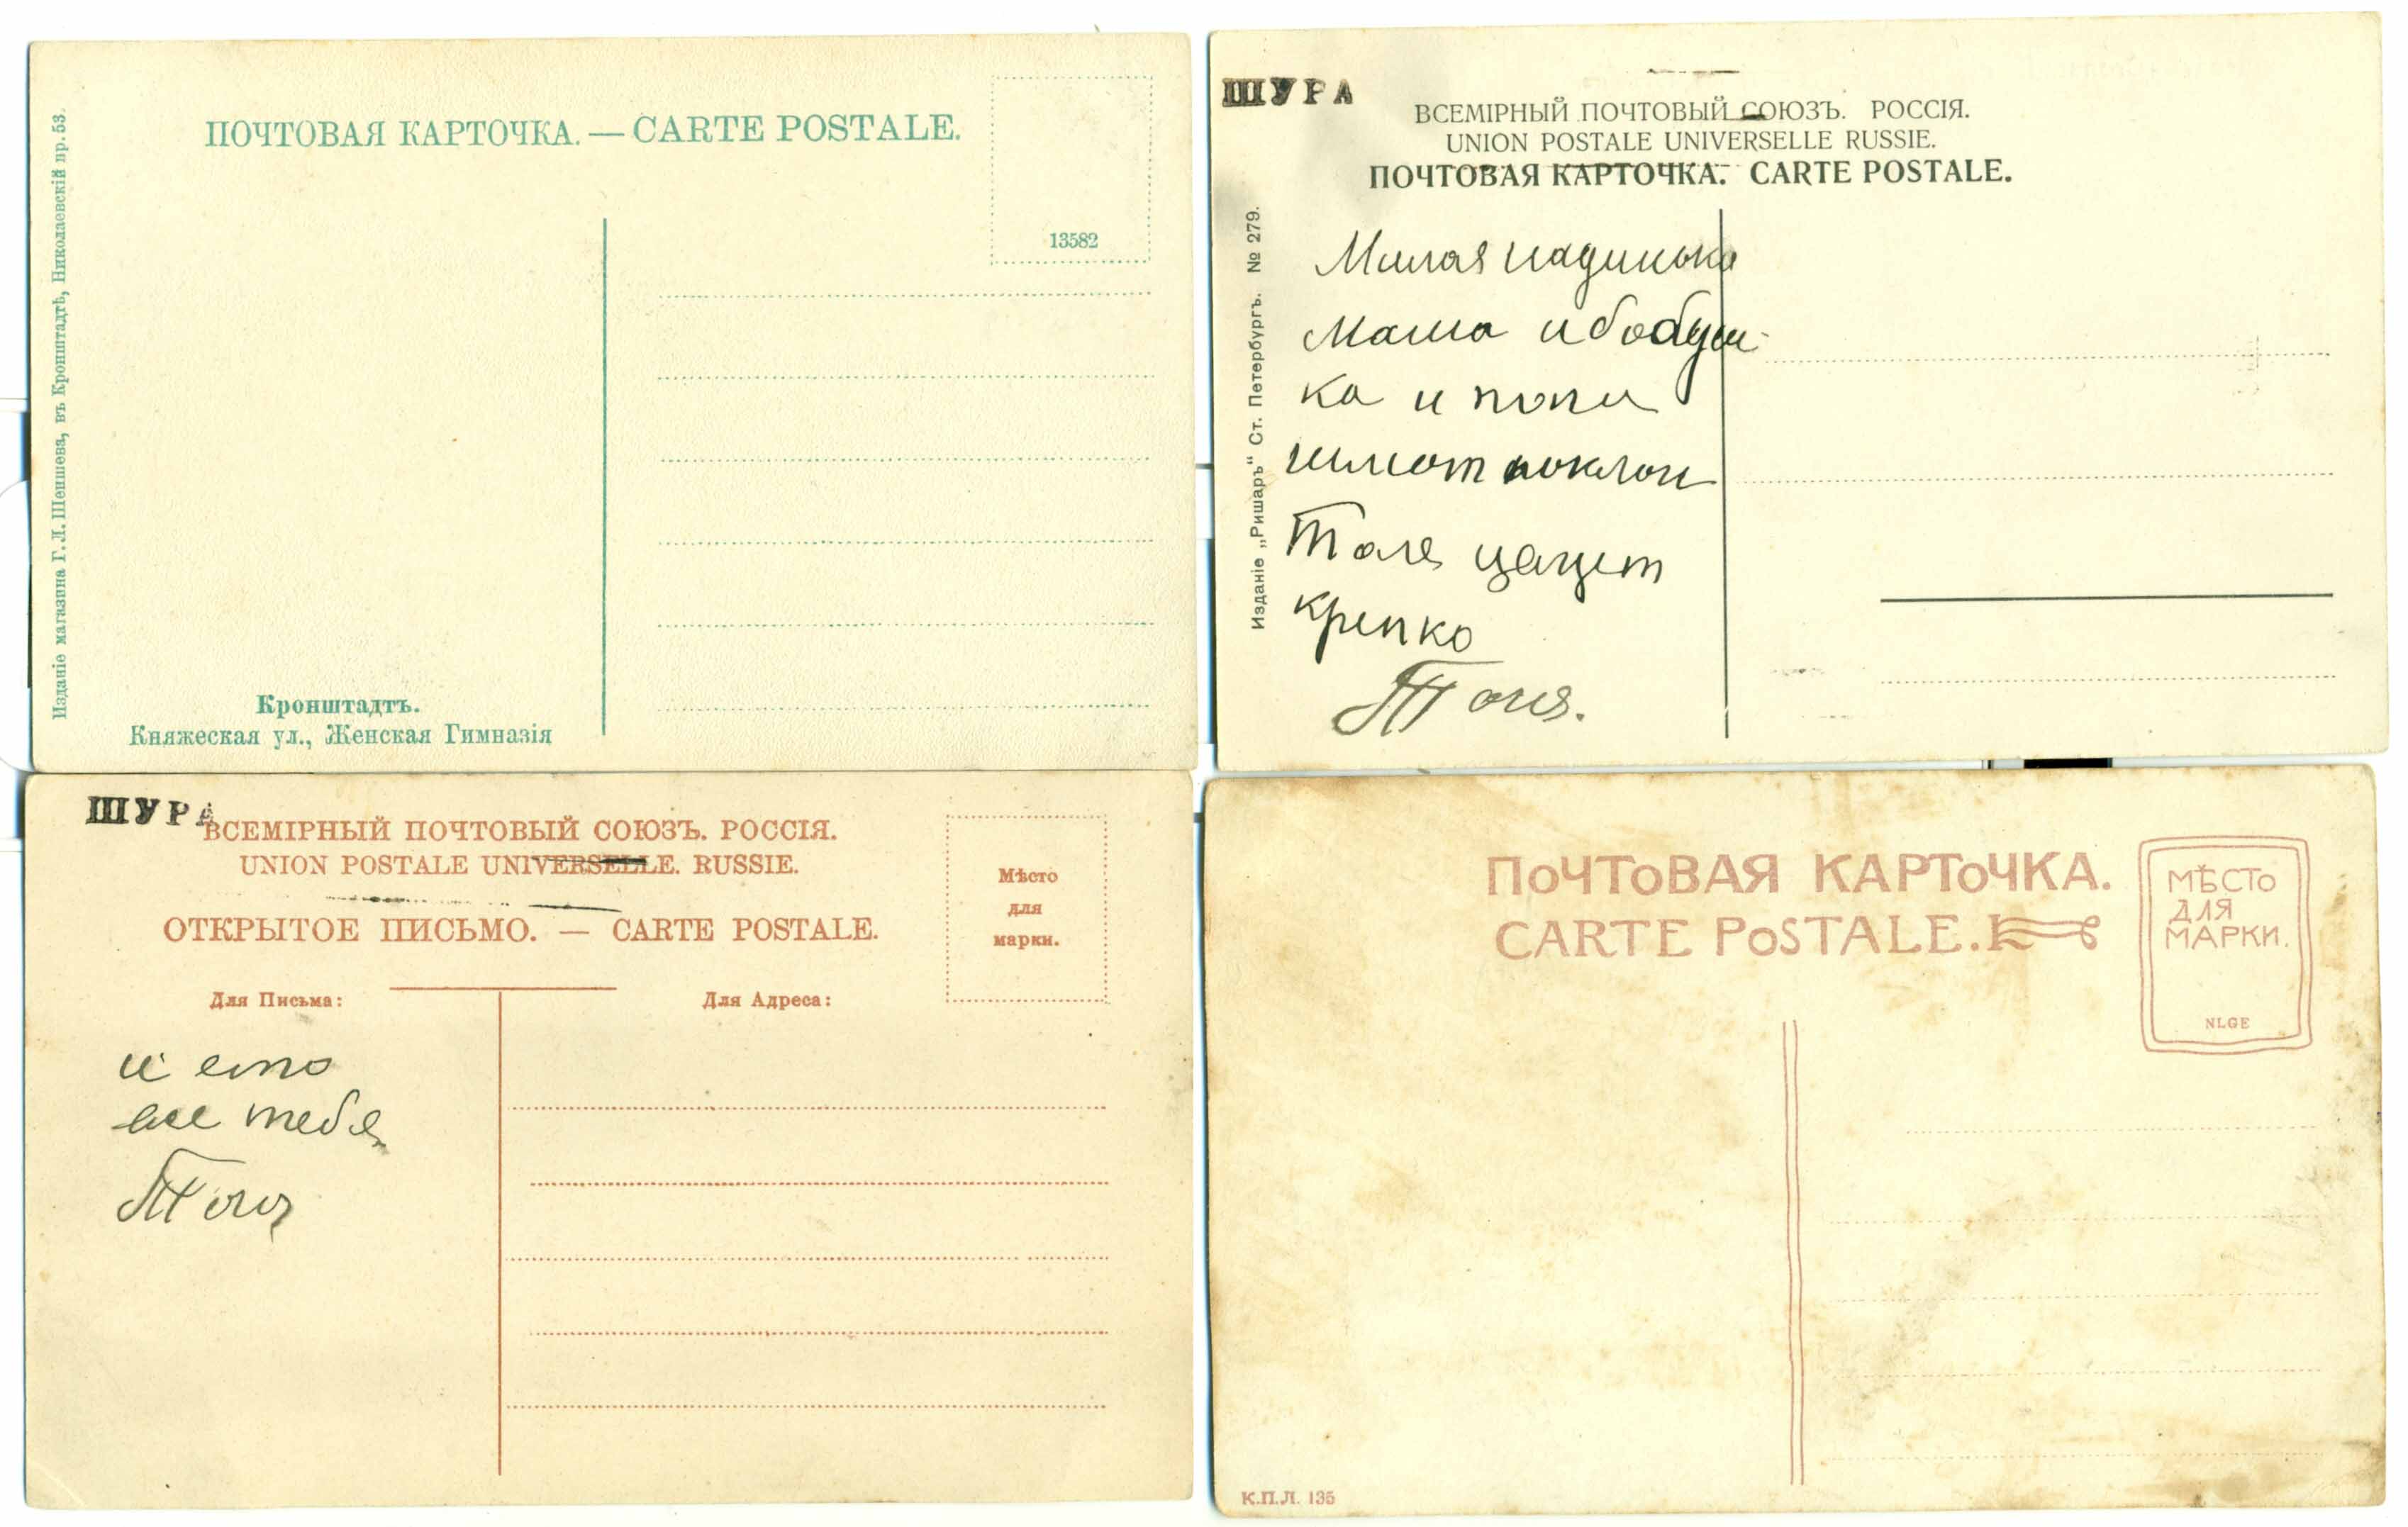 ПОЧТОВАЯ КАРТОЧКА. — CARTE POSTALE.
13582
Изданіе магазина Г. Л. Шеншева, въ Кронштадтѣ, Николаевскій пр. 53.
Кронштадтъ.
Княжеская ул., Женская Гимназія
ШУРА
ВСЕМІРНЫЙ ПОЧТОВЫЙ СОЮЗЪ. РОССІЯ.
UNION POSTALE UNIVERSELLE RUSSIE.
ПОЧТОВАЯ КАРТОЧКА. CARTE POSTALE.
Изданіе „Ришаръ“ Ст. Петербургъ. № 279.
Милая надинька
Маша и бобуш-
ка и
шлют поклон
Толя цалует
крепко
Толя.
ШУРА
ВСЕМІРНЫЙ ПОЧТОВЫЙ СОЮЗЪ. РОССІЯ.
UNION POSTALE UNIVERSELLE. RUSSIE.
ОТКРЫТОЕ ПИСЬМО. — CARTE POSTALE.
Мѣсто
для
марки.
Для Письма:
Для Адреса:
и ето
все тебе
Толя
ПОЧТОВАЯ КАРТОЧКА.
CARTE POSTALE.
МѢСТО
ДЛЯ
МАРКИ.
NLGE
К.П.Л. 135